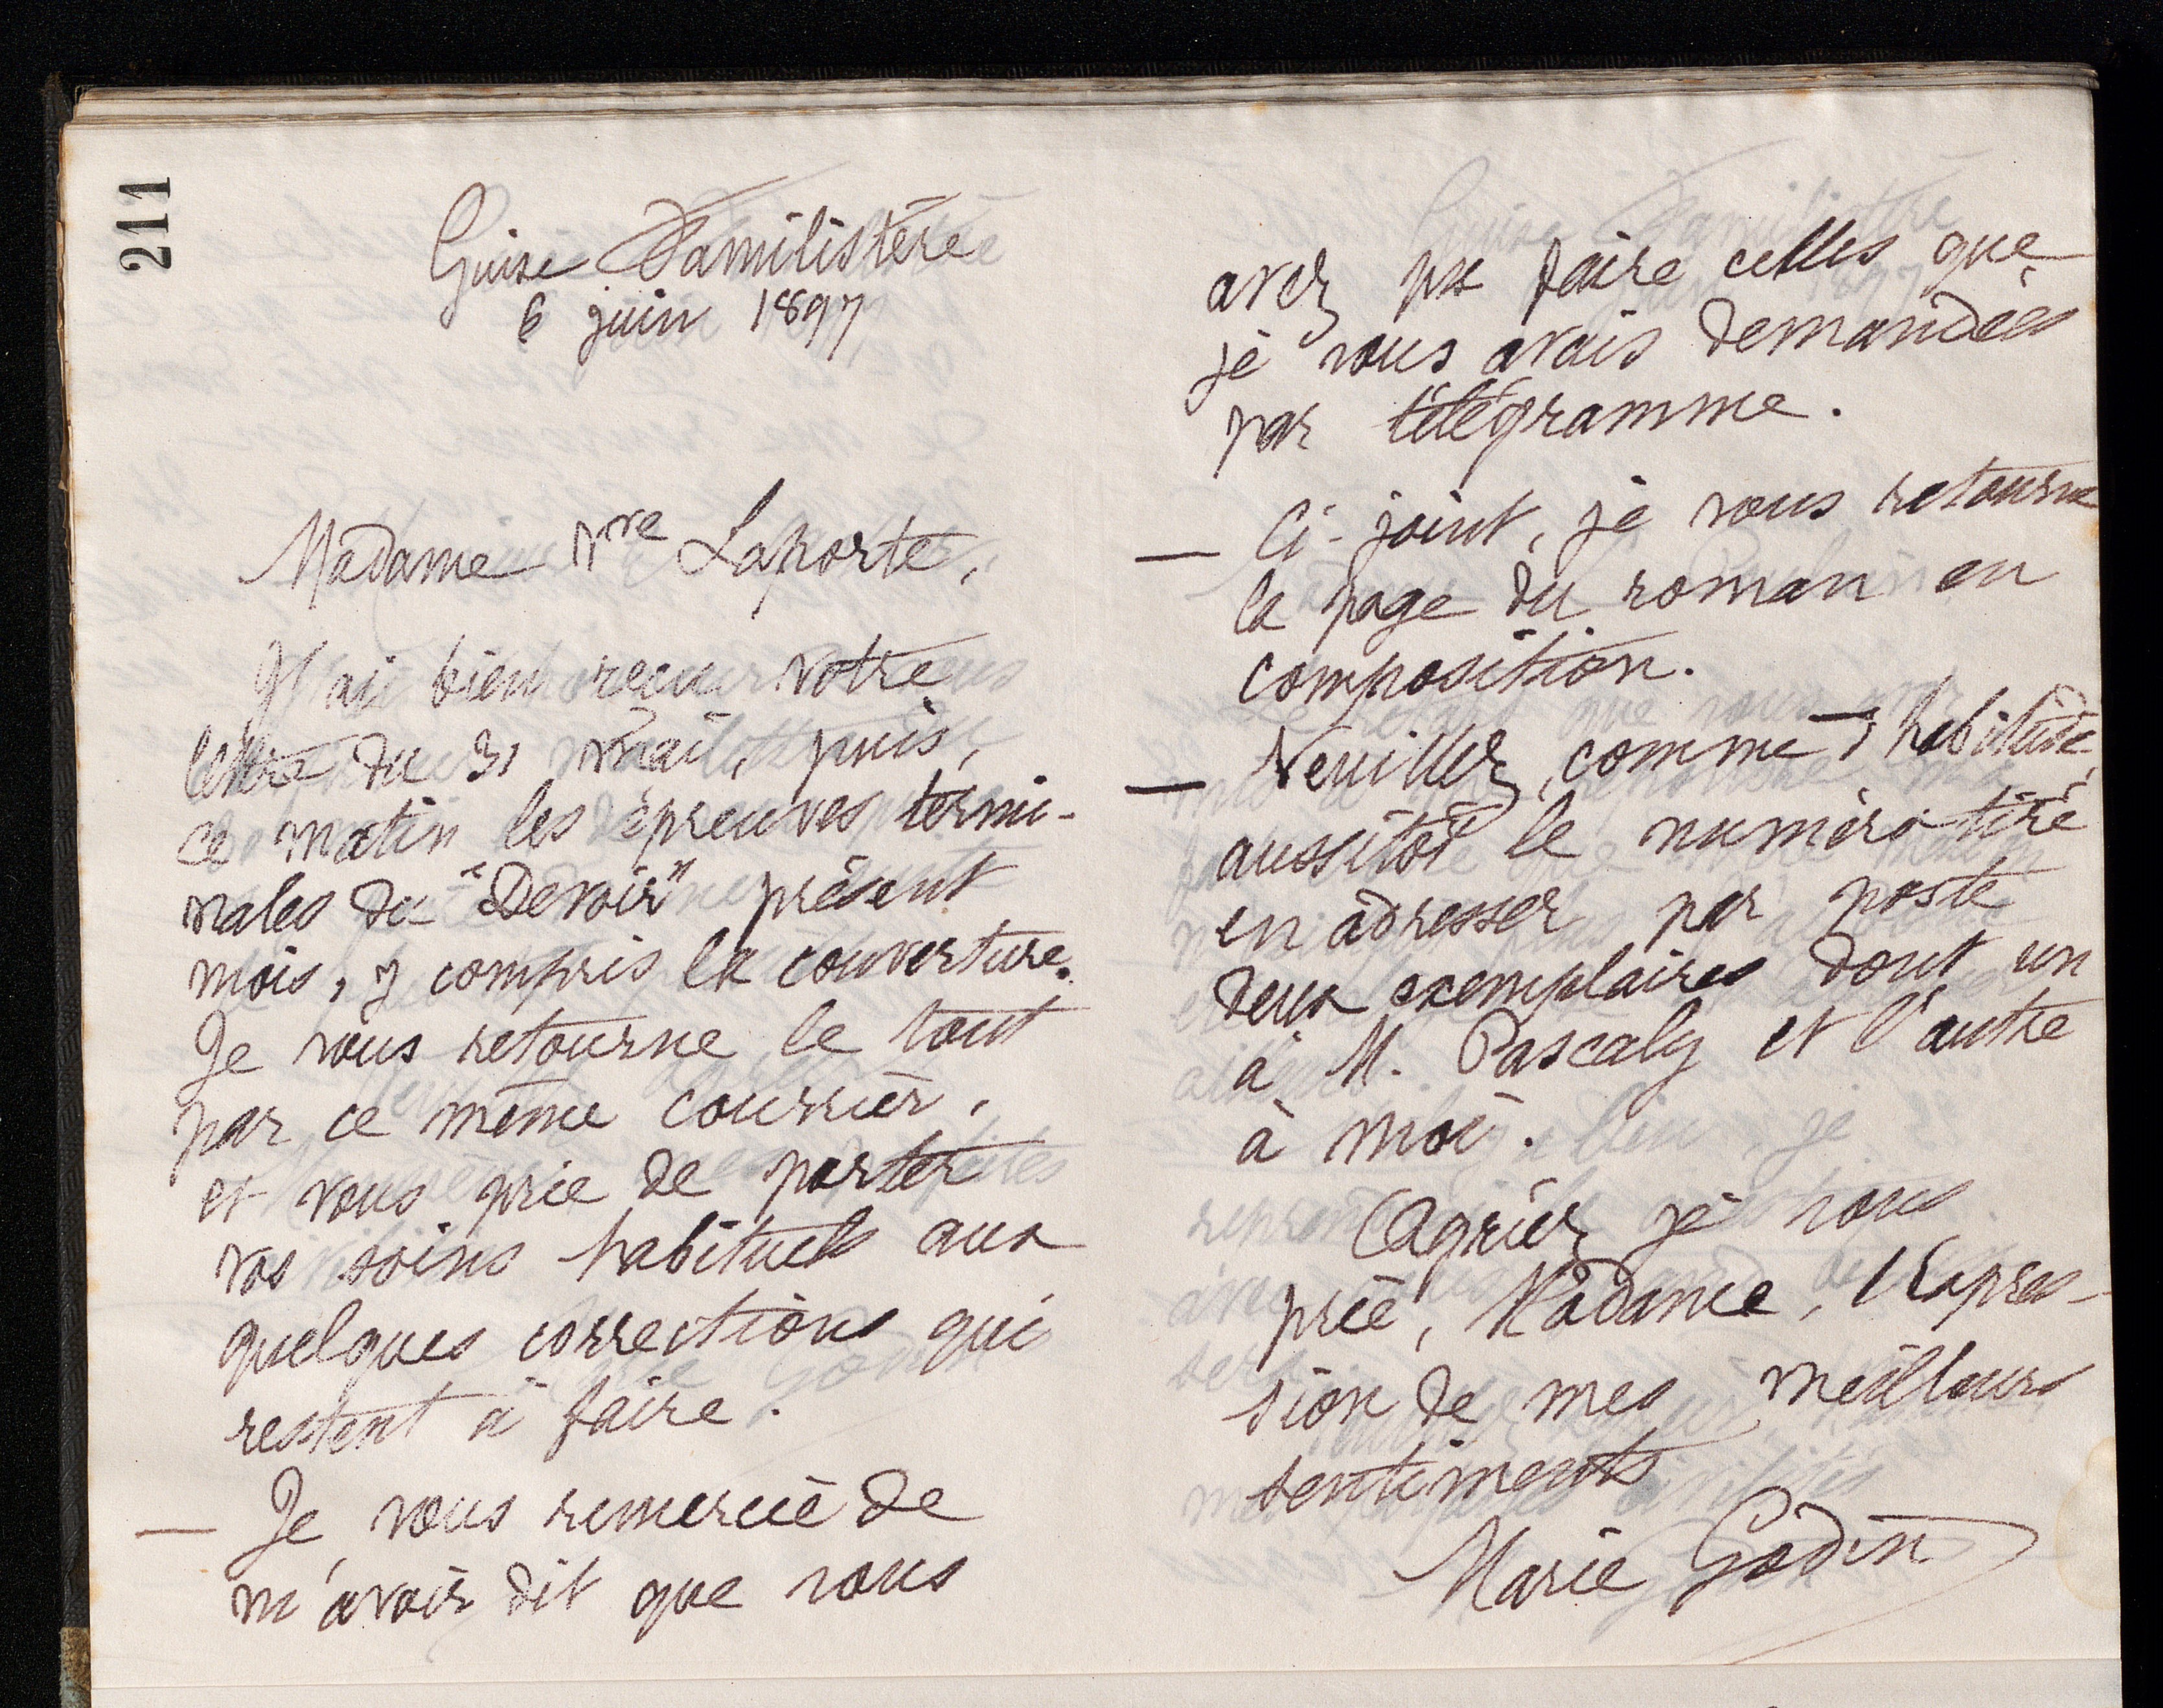 211
Guise Familistère
6 juin 1897
Madame Vve Laporte,
J'ai bien reçu votre
lettre du 31 Mai, puis,
ce matin les épreuves termi-
nales du "Devoir" présent
mois, y compris la couverture.
Je vous retourne le tout
par ce même courrier,
et vous prie de porter
vos soins habituels aux
quelques corrections qui
restent à faire.
— Je vous remercie de
m'avoir dit que vous
avez pu faire celles que
je vous avais demandées
par télégramme.
— Ci-joint, je vous retourne
la page du roman en
composition.
— Veuillez, comme d'habitude,
aussitôt le numéro tiré
en adresser par poste
deux exemplaires dont un
à M. Pascaly et l'autre
à moi.
Agréez, je vous
prie, Madame, l'expres-
sion de mes meilleurs
sentiments
Marie Godin